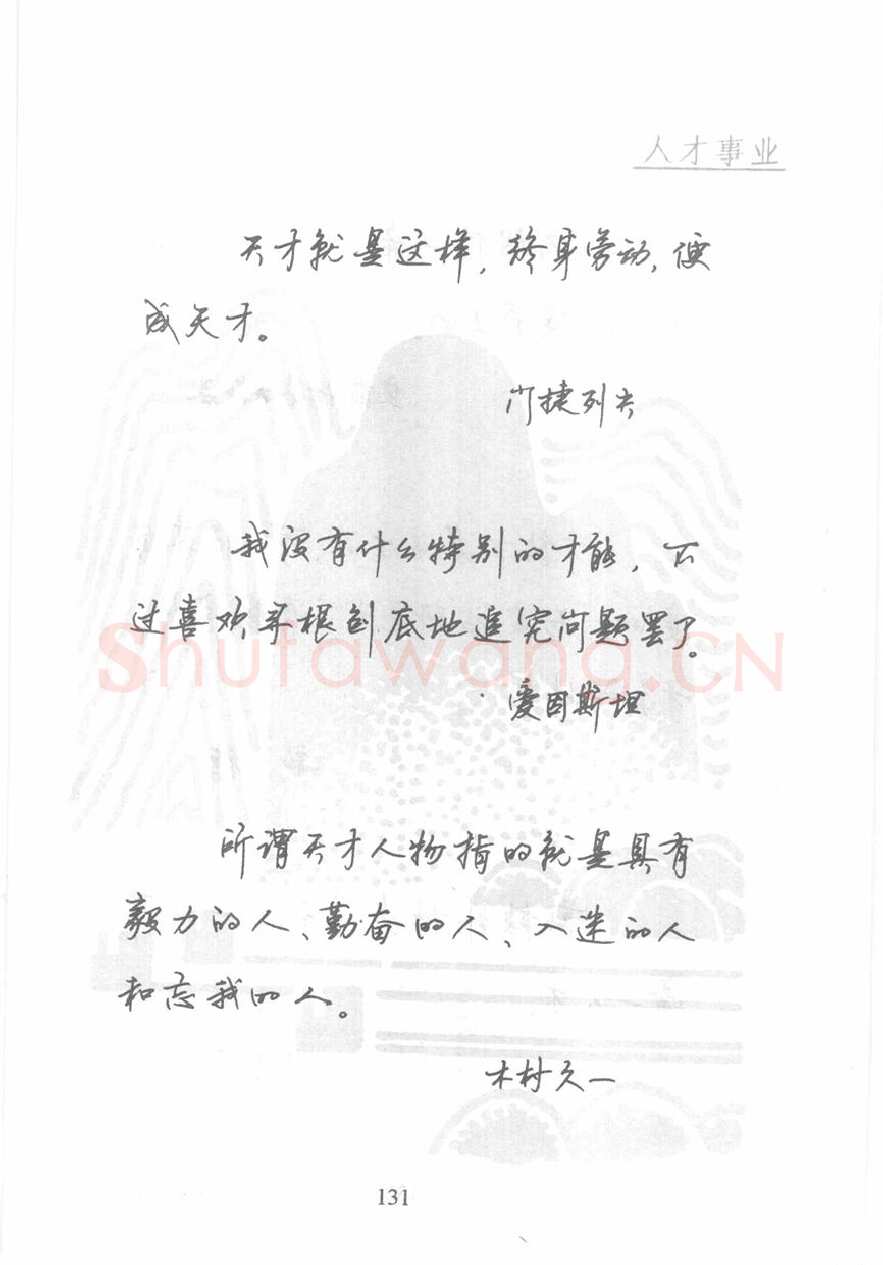 人才事业
天才就是这样,终身劳动,便
成天才。
门捷列夫
我没有什么特别的才能,不
过喜欢寻根刨底地追究问题罢了。
Shufawang.CN
爱因斯坦
所谓天才人物指的就是具有
毅力的人、勤奋的人、入迷的人
和忘我的人。
木村久一
131